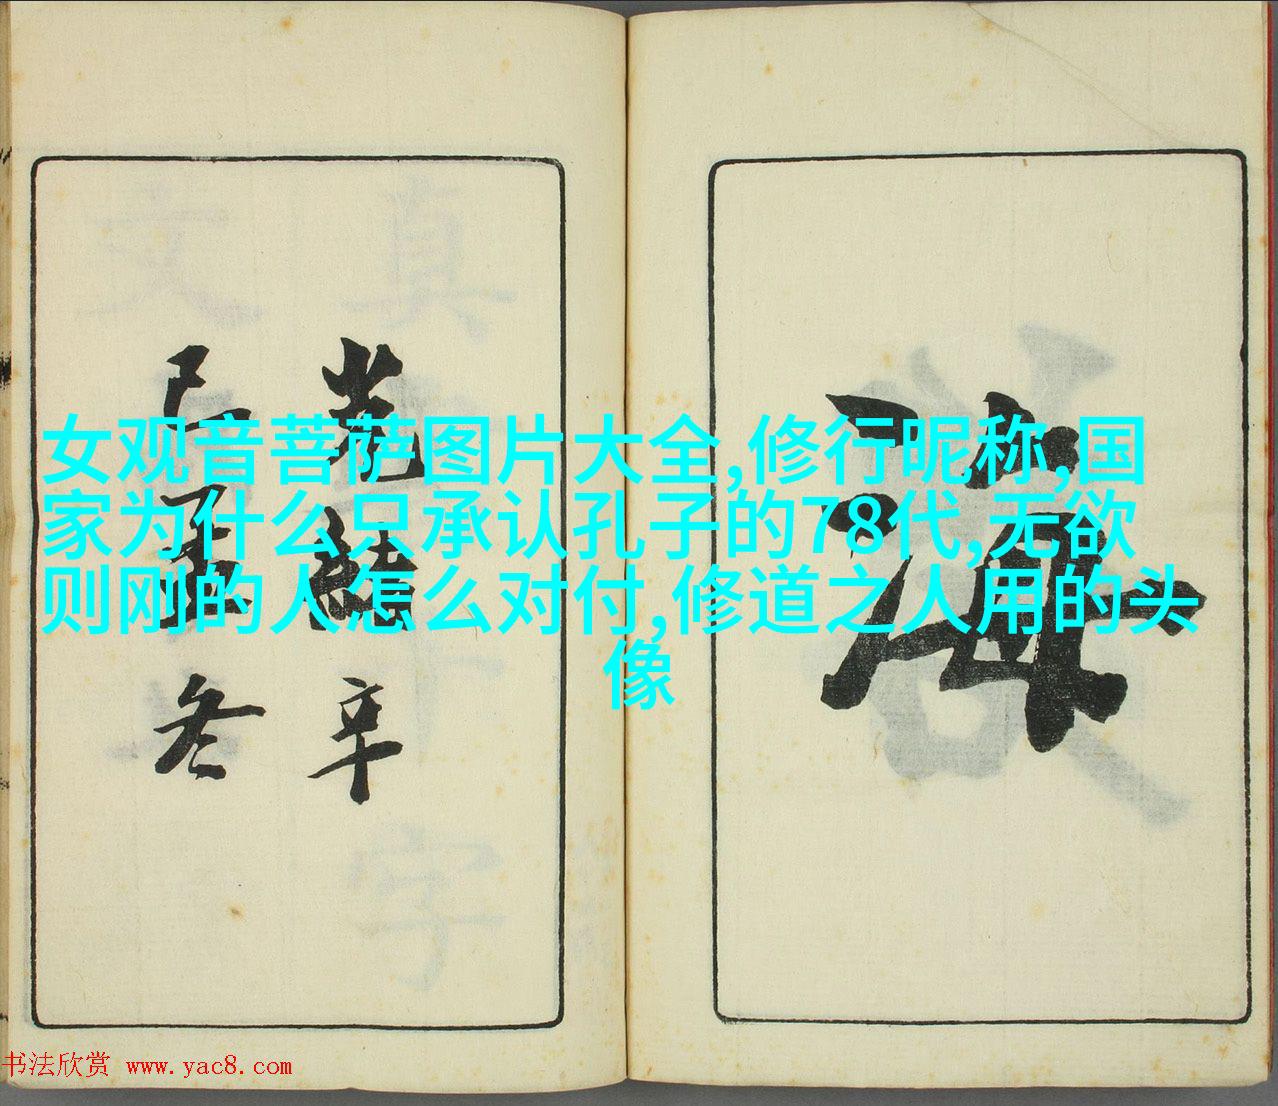 女观音菩萨图片大全,修行昵称,国
家为什么只承认孔子的78代,无欲
则刚的人怎么对付,修道之人用的头
像
海
光緒辛
巳孟冬
书法欣赏 www.yac8.com